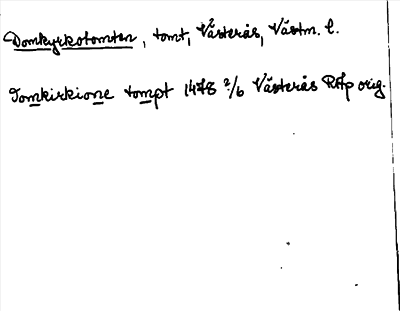 Domkyrkotomten, tomt, Västerås, Västm. l.
Tomkirkione tompt 1478 2/6 Västerås RAp orig.